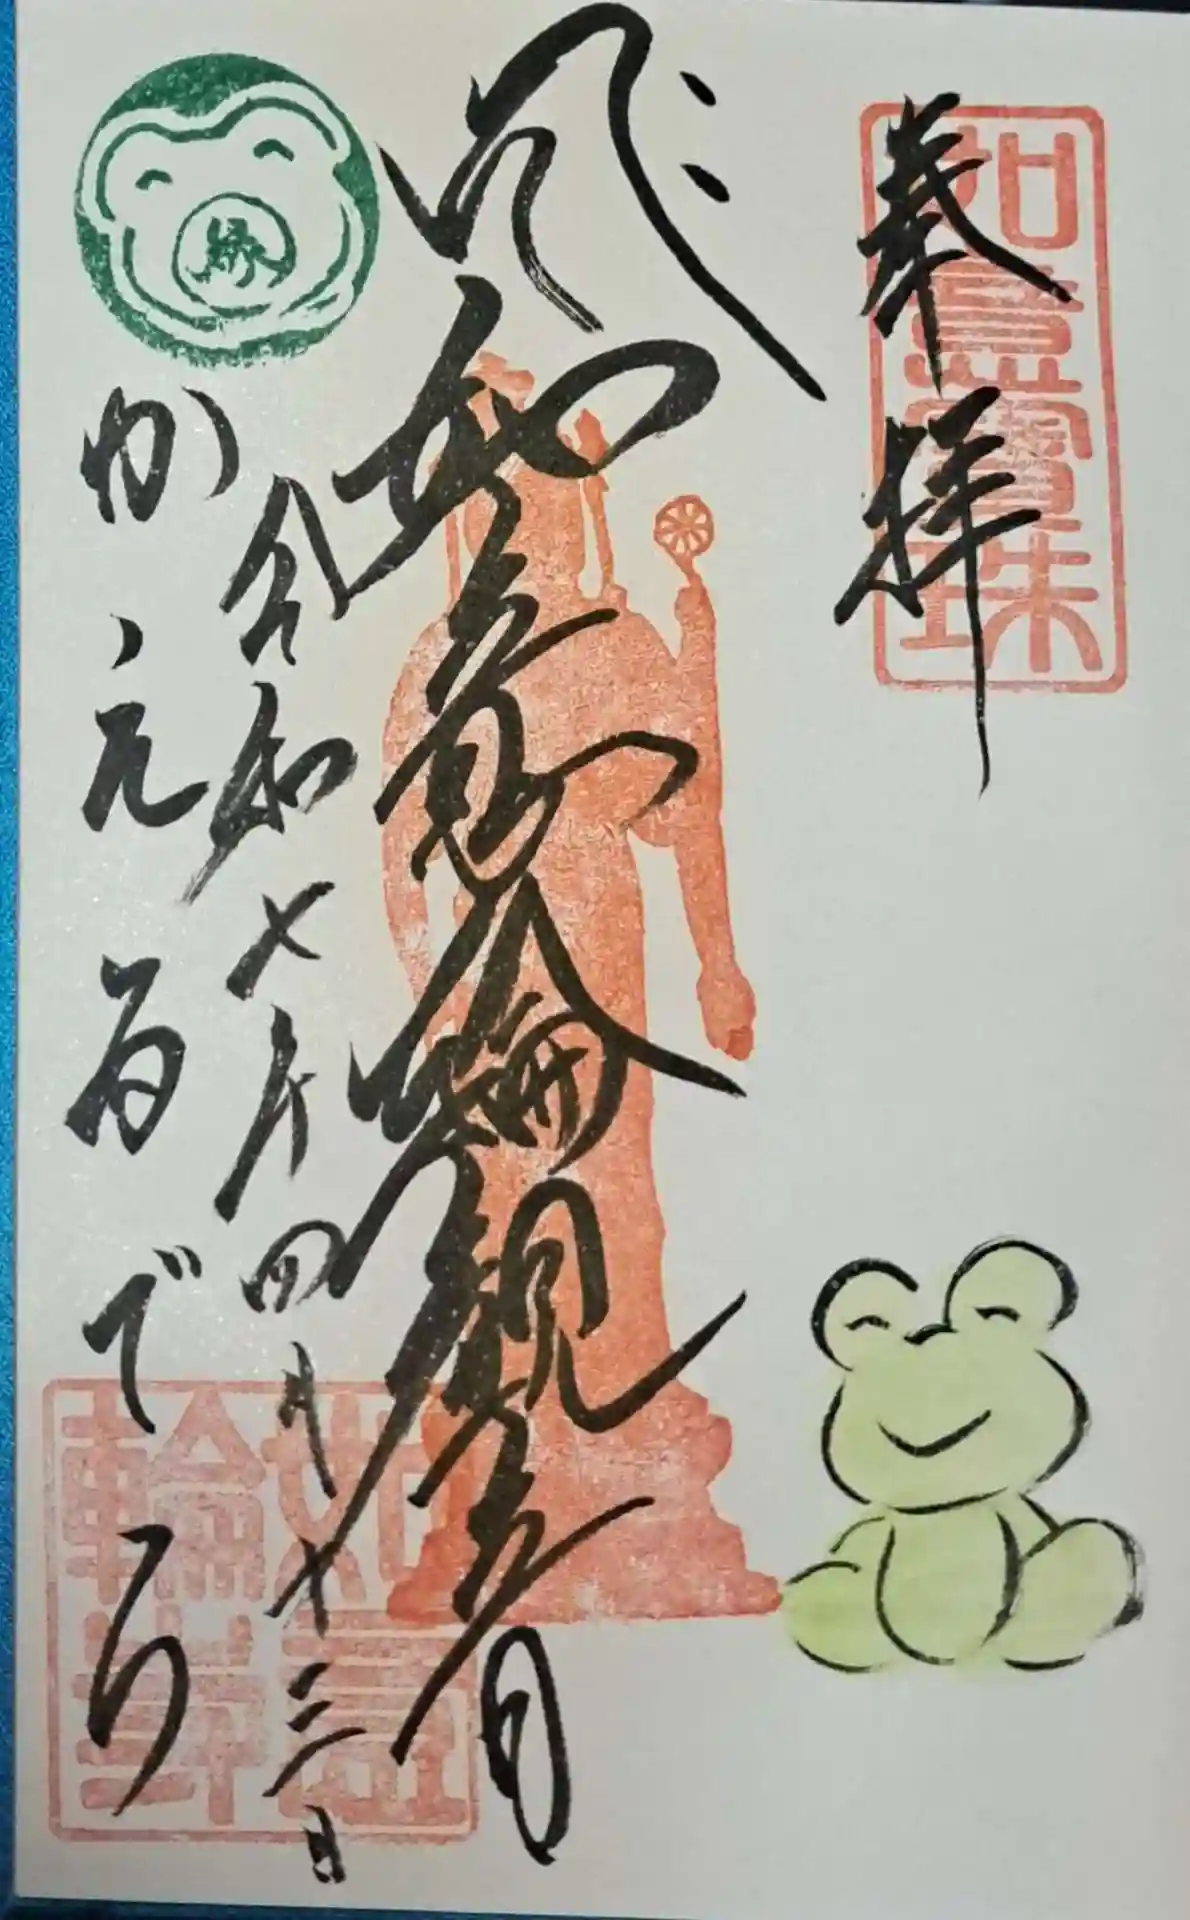 奉拝
如意寶珠
如意輪観音
令和七年四月十三日
縁
かえるでら
如意
輪寺